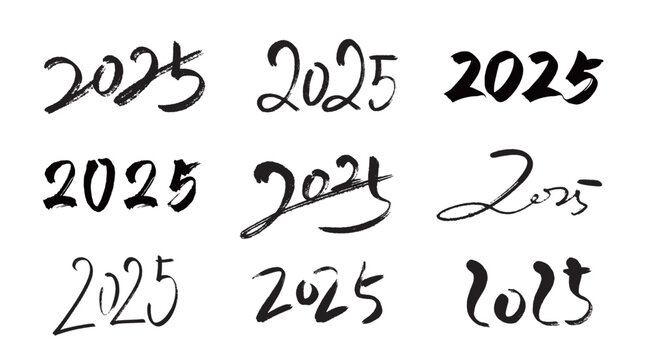 2025 2025 2025
2025 2025 2025
2025 2025 2025